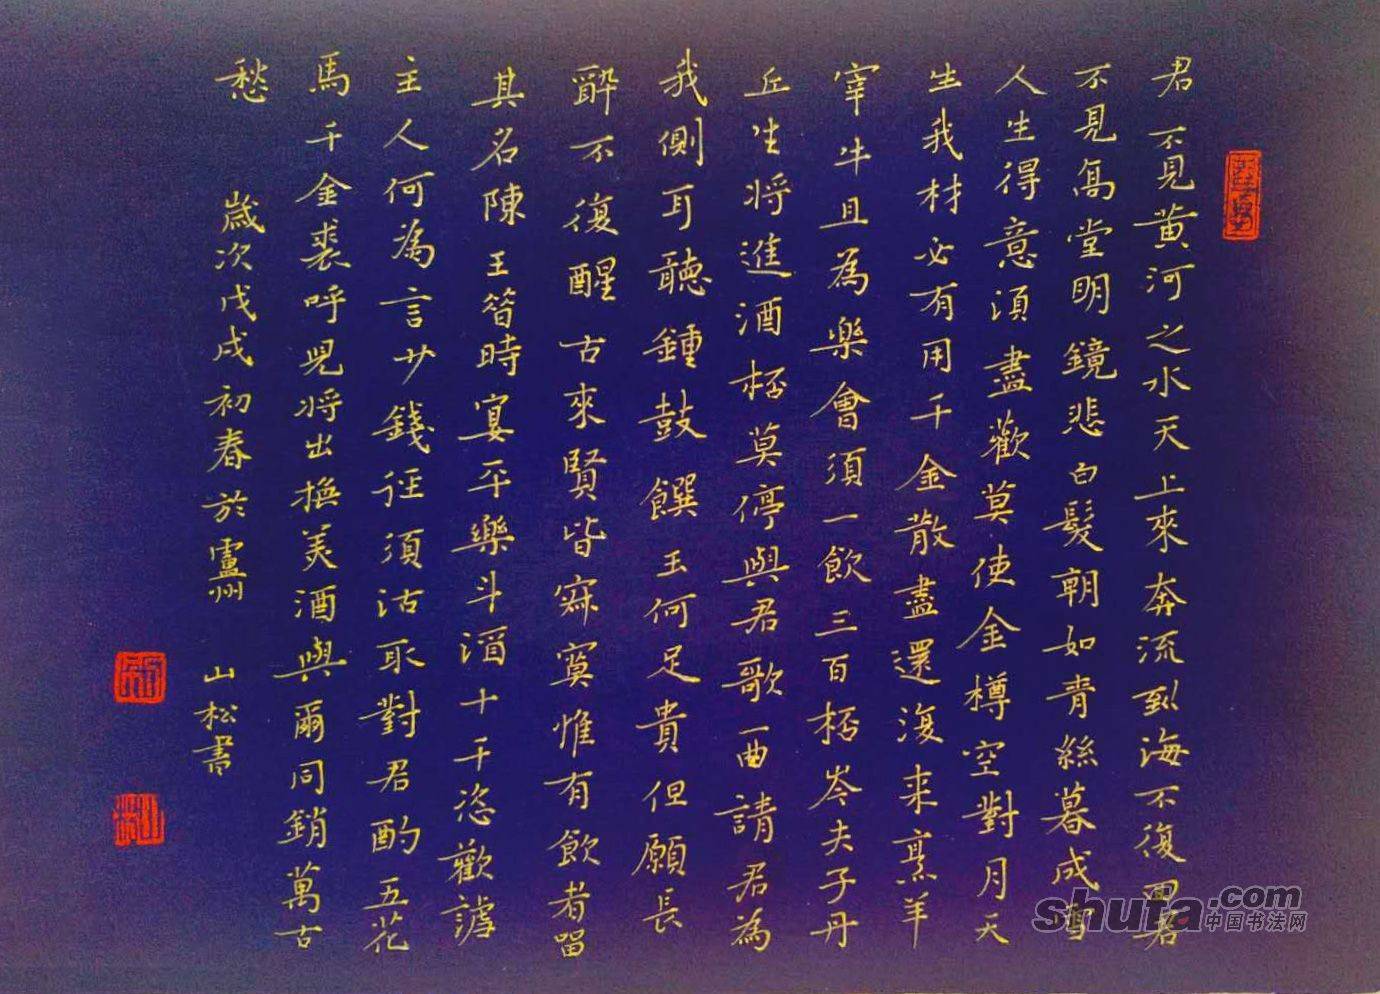 君不見黃河之水天上來奔流到海不復回君
不見高堂明鏡悲白髮朝如青絲暮成雪
人生得意須盡歡莫使金樽空對月天
生我材必有用千金散盡還復来烹羊
宰牛且為樂會須一飲三百杯岑夫子丹
丘生将進酒杯莫停與君歌一曲請君為
我側耳聽鍾鼓饌玉何足貴但願長
醉不復醒古來賢皆寂寞惟有飲者留
其名陳王昔時宴平樂斗酒十千恣歡謔
主人何為言少錢徑須沽取對君酌五花
馬千金裘呼兒将出換美酒與爾同銷萬古
愁 歲次戊戌初春於盧州 山松書
shufa.com
中国书法网